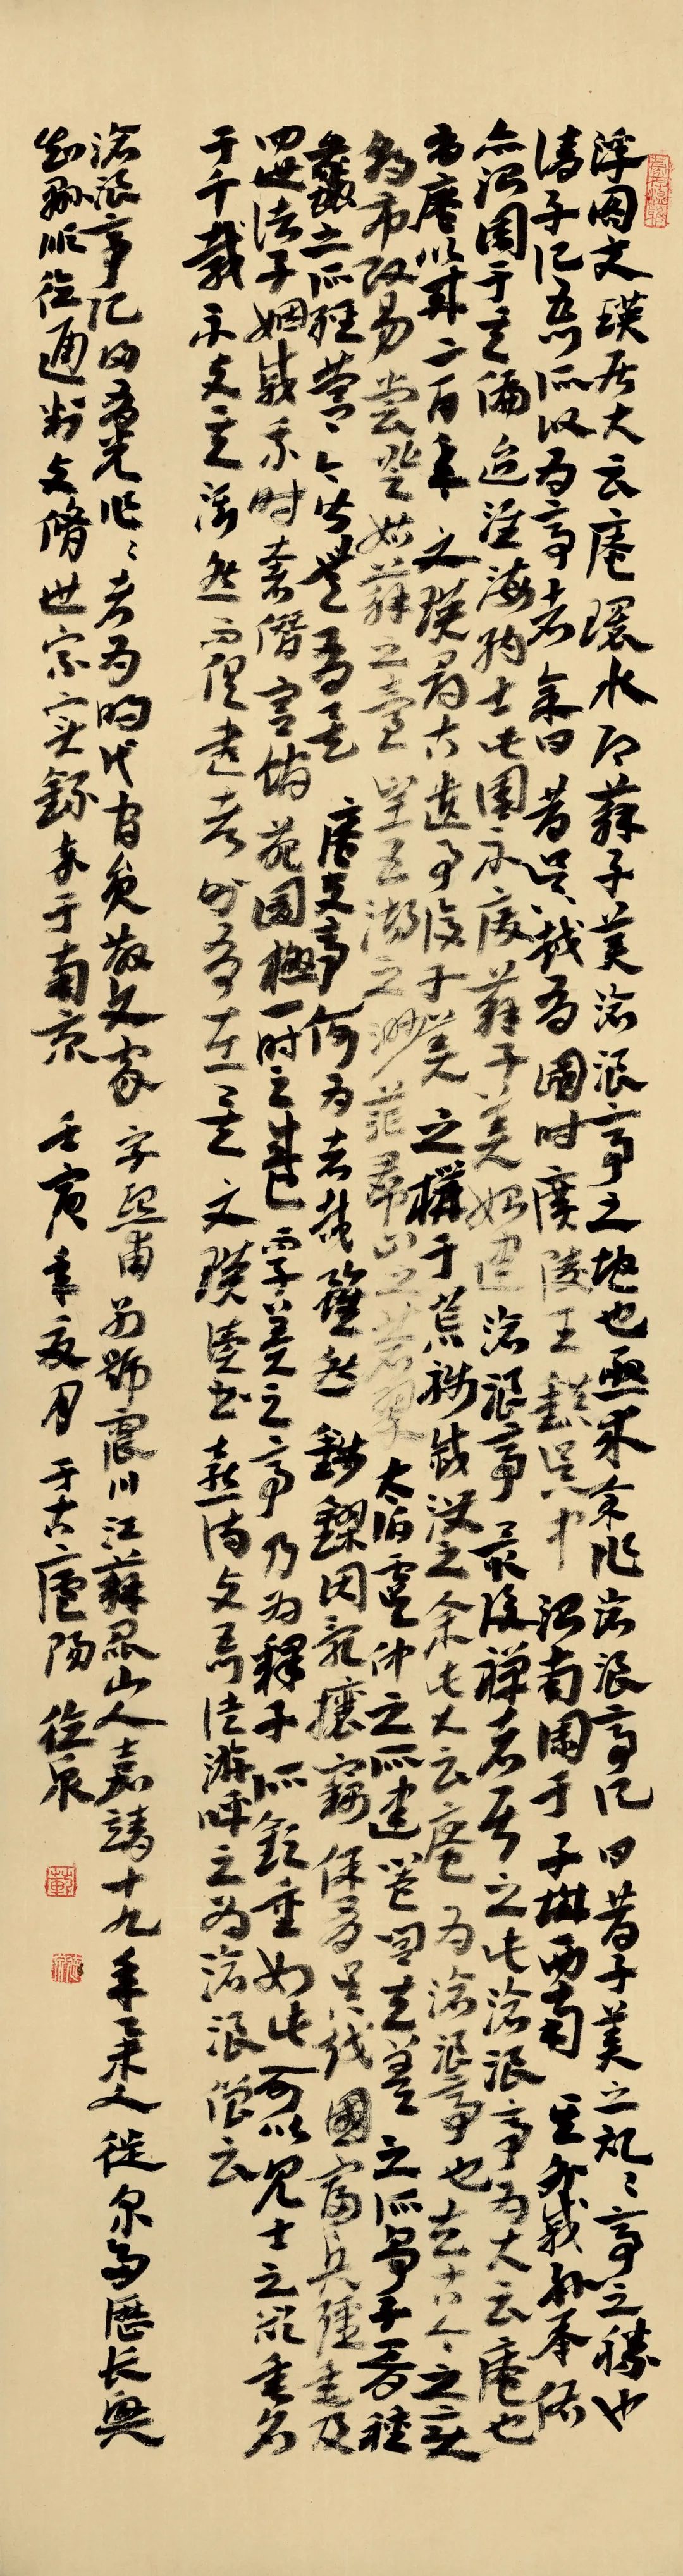 浮图文瑛居大云庵环水即苏子美沧浪亭之地也亟求余作沧浪亭记曰昔子美之记记亭之胜也
请子记吾所以为亭者余曰昔吴越有国时广陵王镇吴中治南园于子城西南其外戚孙承佑
亦治园于其偏迨淮海纳土此园不废苏子美始建沧浪亭最后禅者居之此沧浪亭为大云庵也
有庵以来二百年文瑛寻古遗事复子美之构于荒残灭没之余此大云庵为沧浪亭也夫古今之变
朝市改易尝登姑苏之台望五湖之渺茫群山之苍翠太伯虞仲之所建阖闾夫差之所争子胥种
蠡之所经营今皆无有矣庵与亭何为者哉虽然钱镠因乱攘窃保有吴越国富兵强垂及
四世诸子姻戚乘时奢僭宫馆苑囿极一时之盛而子美之亭乃为释子所钦重如此可以见士之欲垂名
于千载不与其澌然而俱尽者则有在矣文瑛读书喜诗文与吾徒游呼之为沧浪僧云
沧浪亭记归有光作有光为明代官员散文家字熙甫别号震川江苏昆山人嘉靖十九年举人徙
知县顺德通判文修世宗实录卒于南京壬寅年夏月于古庐阳